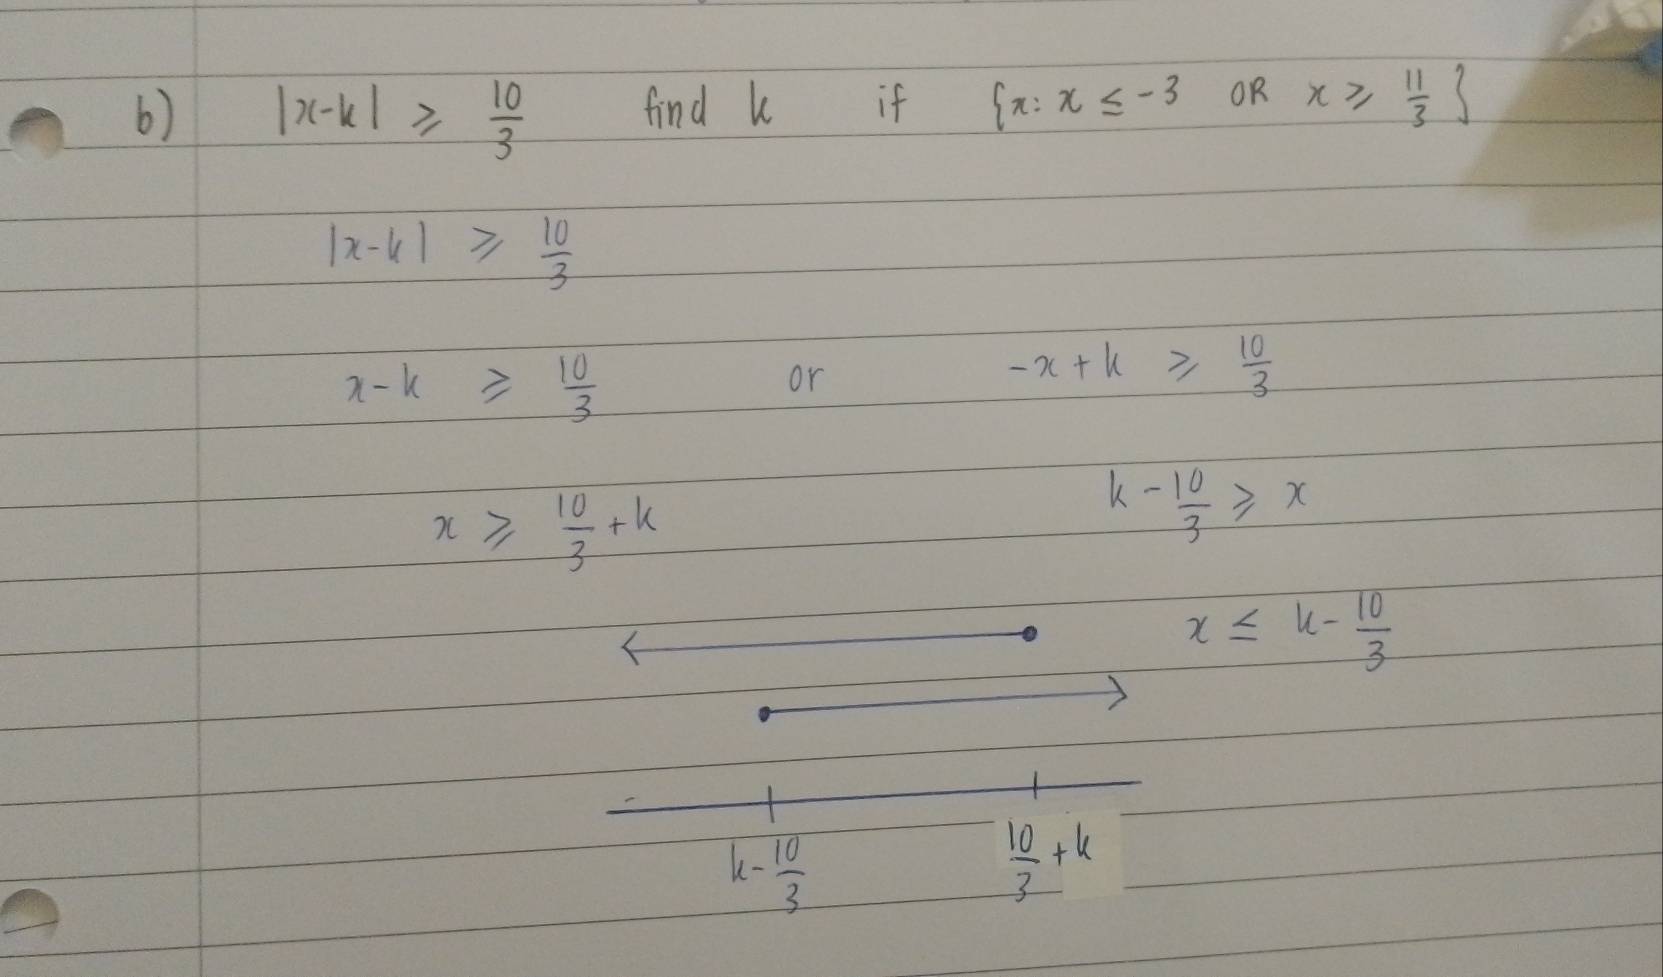 b) |x-k| ≥ 10/3 find k if {x: x ≤ -3 OR x ≥ 11/3}
|x-k| ≥ 10/3
x-k ≥ 10/3 or -x+k ≥ 10/3
x ≥ 10/3 +k k - 10/3 ≥ x
x ≤ k- 10/3
k- 10/3 10/3 +k